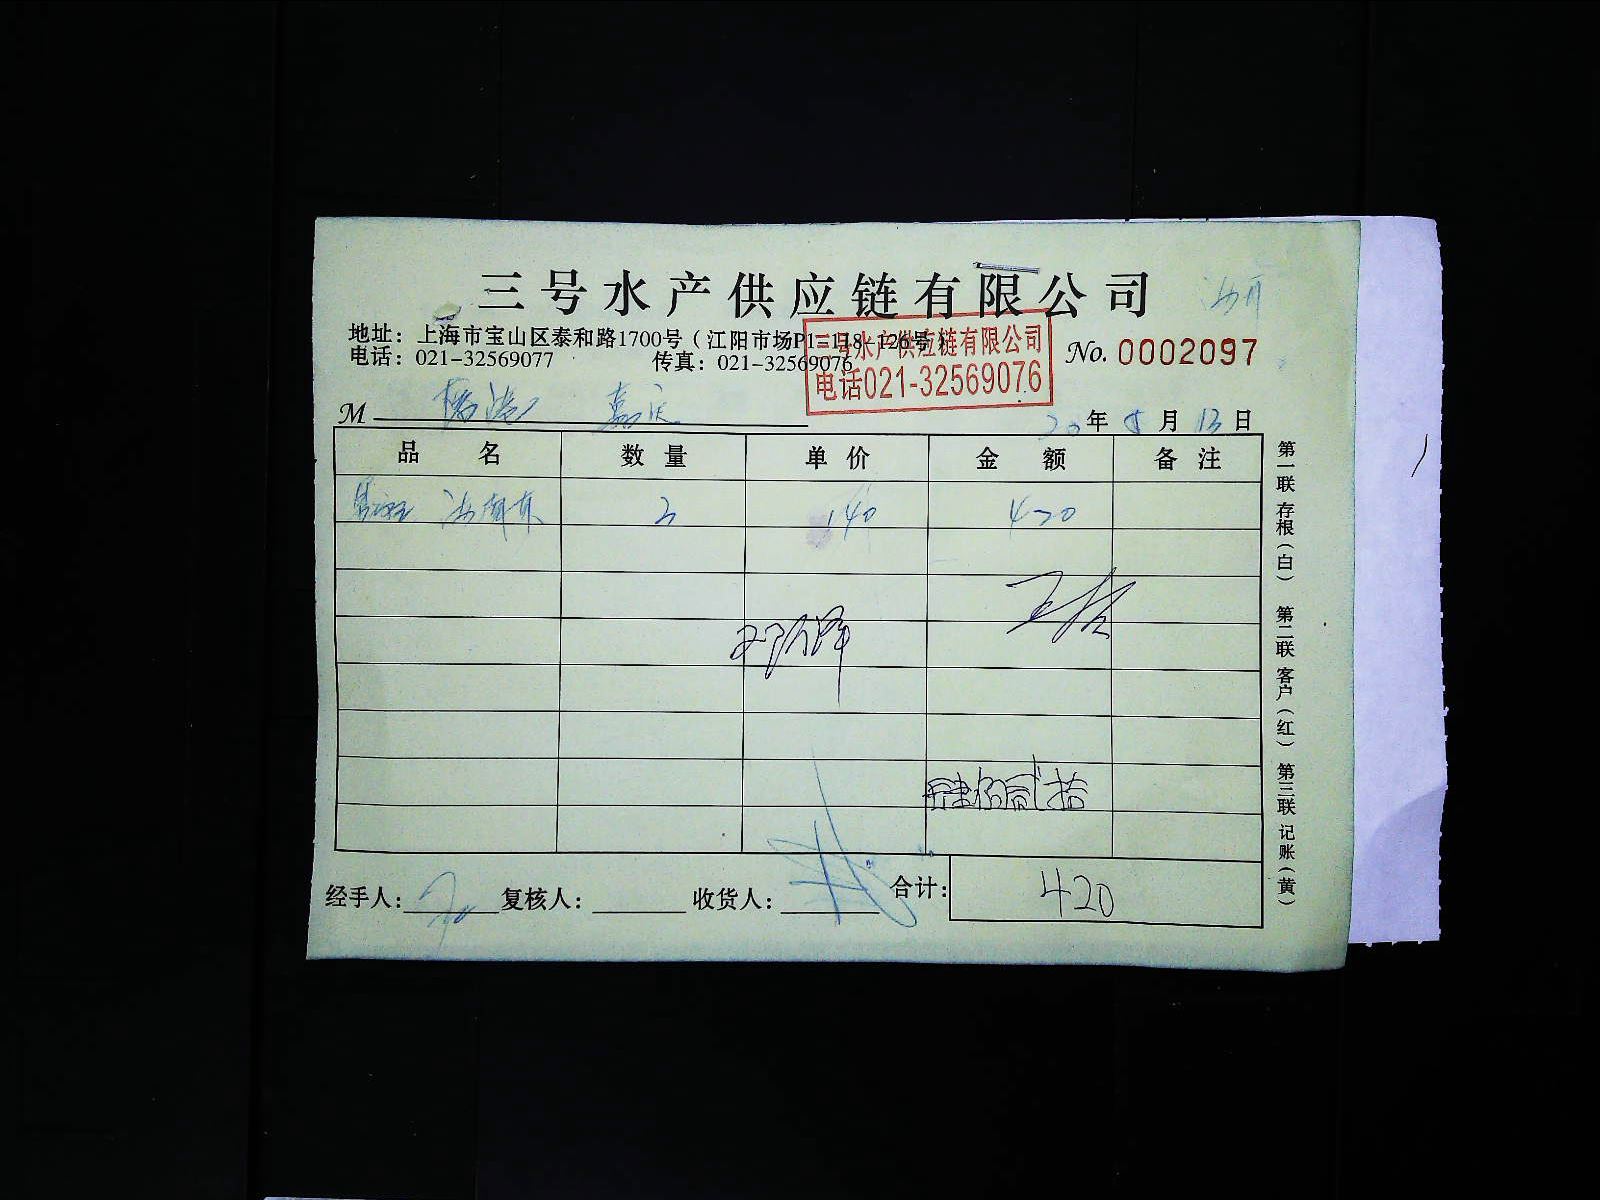 三号水产供应链有限公司
地址：上海市宝山区泰和路1700号（江阳市场P1-118-126号）
电话：021-32569077 传真：021-32569076
三号水产供应链有限公司
电话021-32569076
No. 0002097
M
20年8月13日
品名 数量 单价 金额 备注
3 140 420
肆佰贰拾
经手人： 复核人： 收货人： 合计：420
第一联存根（白） 第二联客户（红） 第三联记账（黄）